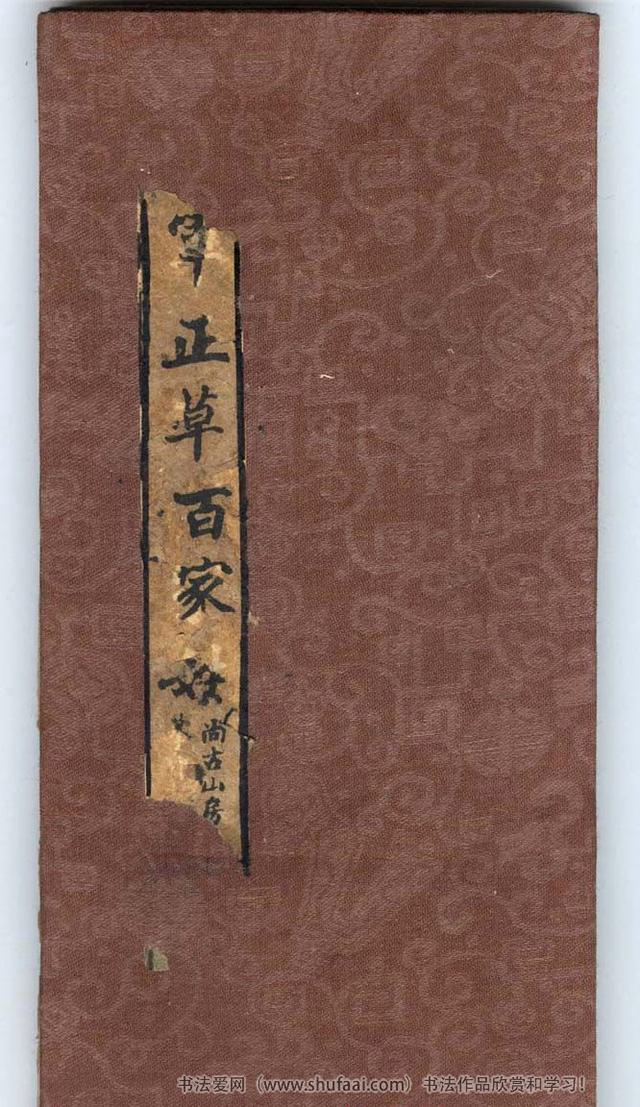 正草百家姓
尚古山房
书法爱网（www.shufaai.com）书法作品欣赏和学习！